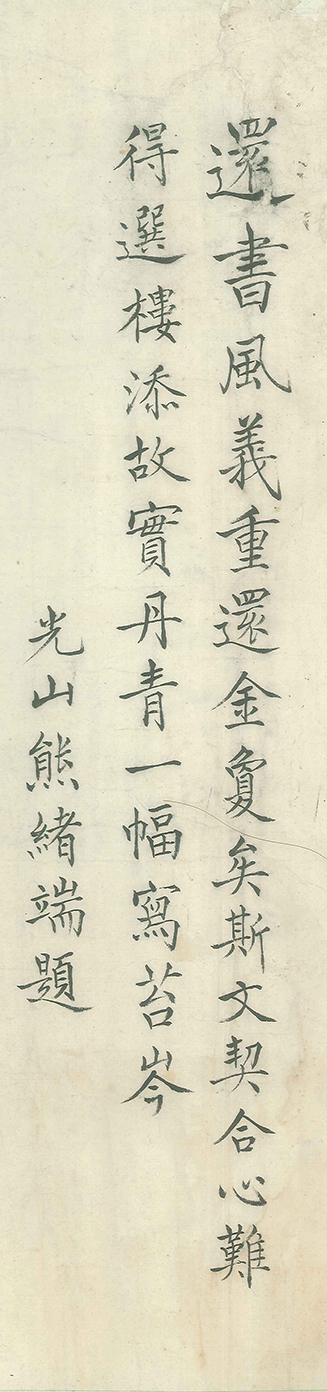 還書風義重還金敻矣斯文契合心難
得選樓添故實丹青一幅寫苔岑
光山熊緒端題